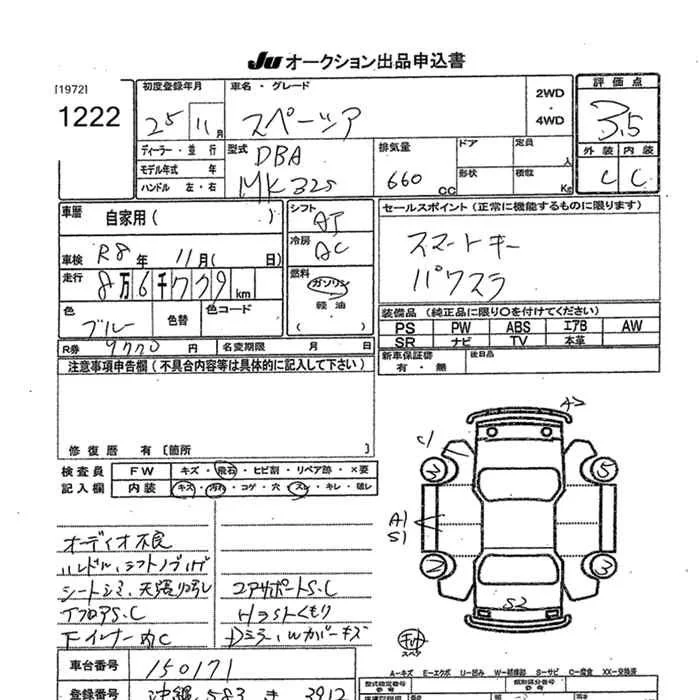 Ju オークション出品申込書
[1972]
1222
初度登録年月
25 11月
車名・グレード
スペーシア
2WD
・
4WD
評価点
3.5
外装 内装
C C
ディーラー・並行
モデル年式 年
ハンドル 左・右
型式
DBA
MK32S
排気量
660 CC
ドア
定員
人
形状
積載
Kg
車歴
自家用( )
シフト
AT
セールスポイント(正常に機能するものに限ります)
スマートキー
パワスラ
車検
R8年 11月( 日)
冷房
AC
走行
8万6千779km
燃料
ガソリン
・
軽油
( )
色
ブルー
色替
色コード
装備品(純正品に限り○を付けてください)
PS PW ABS エアB AW
SR ナビ TV 本革
R券 9770円
名変期限 月 日
新車保証書
有・無
後日品
注意事項申告欄(不具合内容等は具体的に記入して下さい)
修復歴 有〔箇所 〕
検査員
記入欄
FW
キズ・飛石・ヒビ割・リペア跡・×要
内装
キズ・汚れ・コゲ・穴・スレ・キレ・破レ
オーディオ不良
シートシミ、天張リ汚レ
TフロアS.C
コアサポートS.C
Hライトくもり
Dミラー、Wカバーキズ
A2
C1
3
5
A1
S1
2
3
S2
キット
スペア
A=キズ E=エクボ U=凹み W=補修跡 S=サビ C=腐食 XX=交換済
車台番号
150171
登録番号
沖縄 583 き 3912
型式指定番号
類別区分番号